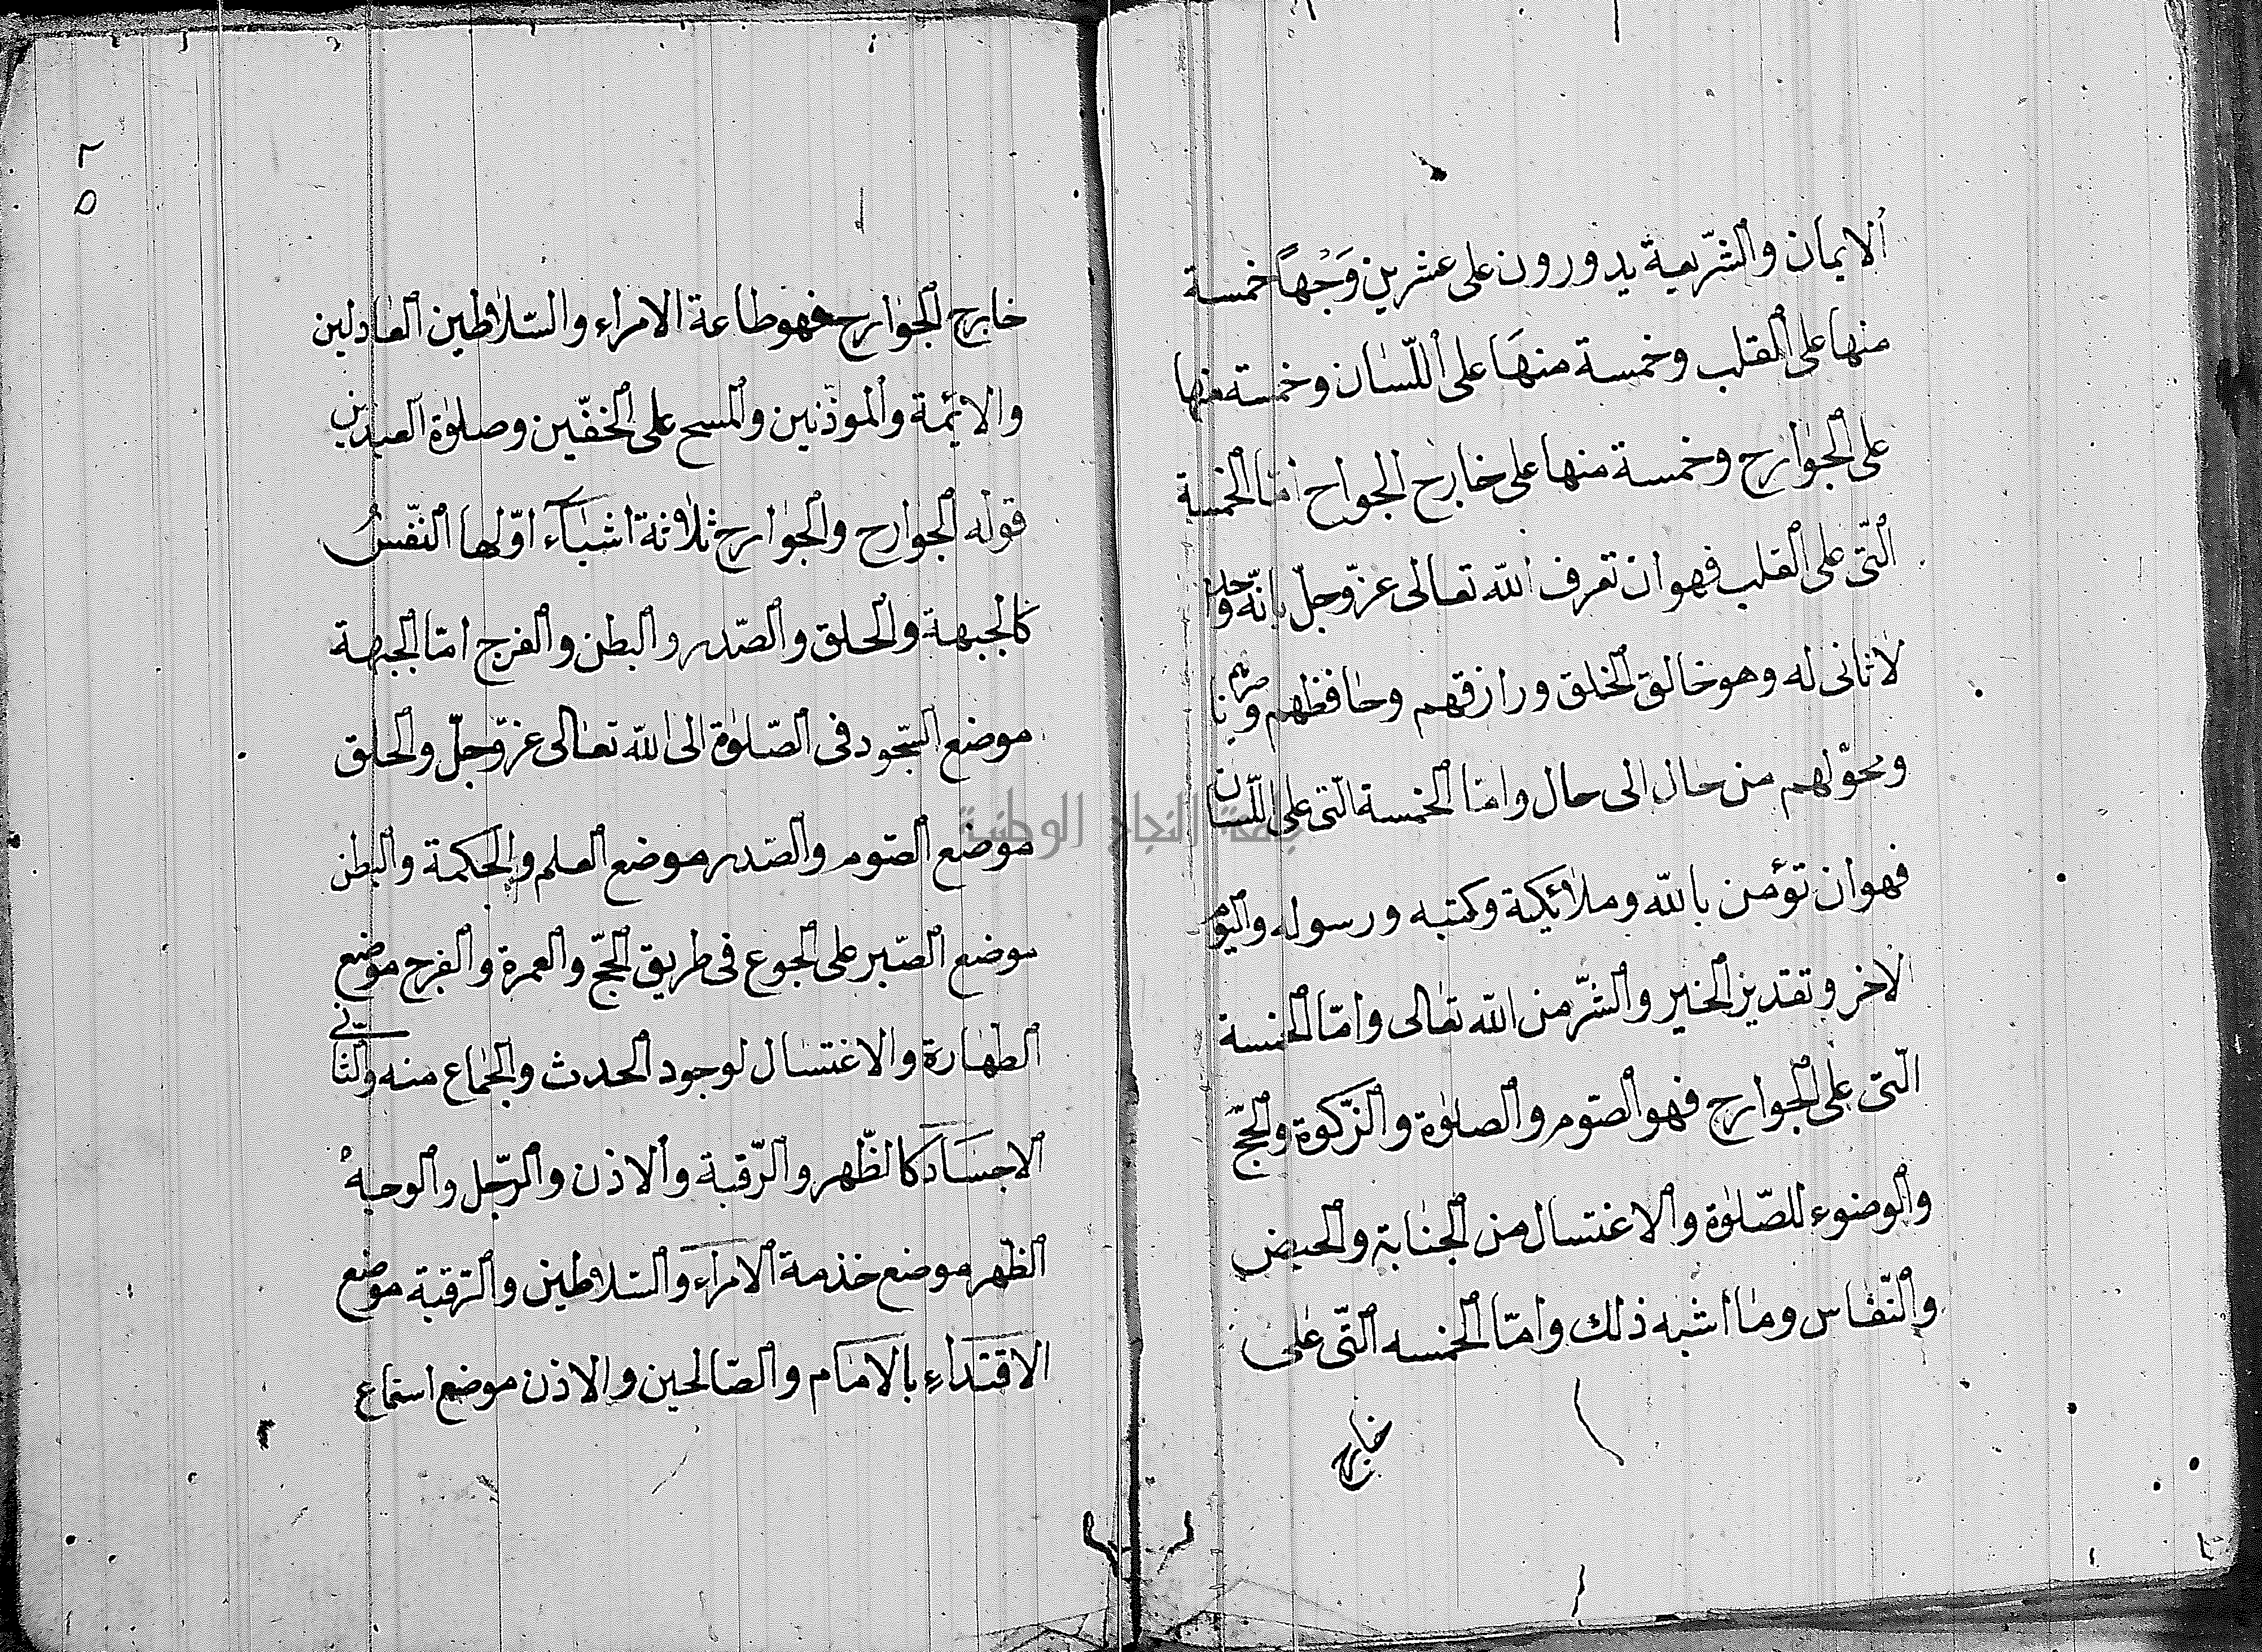 الايمان والشّريعة يدورون على عشرين وَجْهاً خمسة
منها على القلب وخمسة منهَا على اللّسَان وخمسة منها
على الجوارح وخمسة منها على خارج الجواح امّا الخمسة
التّى على القلب فهو ان تعرف الله تعالى عزّ وجلّ بانّه واحد
لا ثانى له وهو خالق الخلق ورازقهم وحافظهم
ومحوّلهم من حال الى حال وامّا الخمسة التى على اللّسان
فهو ان تؤمن بالله وملائكية وكتبه ورسوله واليوم
الاخر وتقدير الخير والشّر من الله تعالى وامّا الخمسة
التّى على الجوارح فهو الصّوم والصلوٰة والزّكوة والحجّ
والوضوء للصّلوٰة والاغتسال من الجنابة والحيض
والنّفاس وما اشبه ذلك وامّا الخمسه التّى على
خارج
٥
خارج الجوارح فهو طاعة الامراء والسّلاطين العادلين
والائمة والموذّنين والمسح على الخفّين وصلوٰة العيدين
قوله الجوارح والجوارح ثلاثة اشيآء اوّلها النّفسُ
كالجبهة والحلق والصّدر والبطن والفرج امّا الجبهة
موضع السّجود فى الصّلوٰة الى الله تعالى عزّ وجلّ والحلق
موضع الصّوم والصّدر موضع العلم والحكمة والبطن
موضع الصّبر على الجوع فى طريق الحجّ والعمرة والفرج موضع
الطهارة والاغتسال لوجود الحدث والجماع منه والثّانى
الاجسَاد كالظّهر والرّقبة والاذن والرّجل والوجهُ
الظّهر موضع خذمة الامراء والسّلاطين والرّقبة موضع
الاقتداءِ بالامام والصّالحين والاذن موضع استماع
جامعة النجاح الوطنية